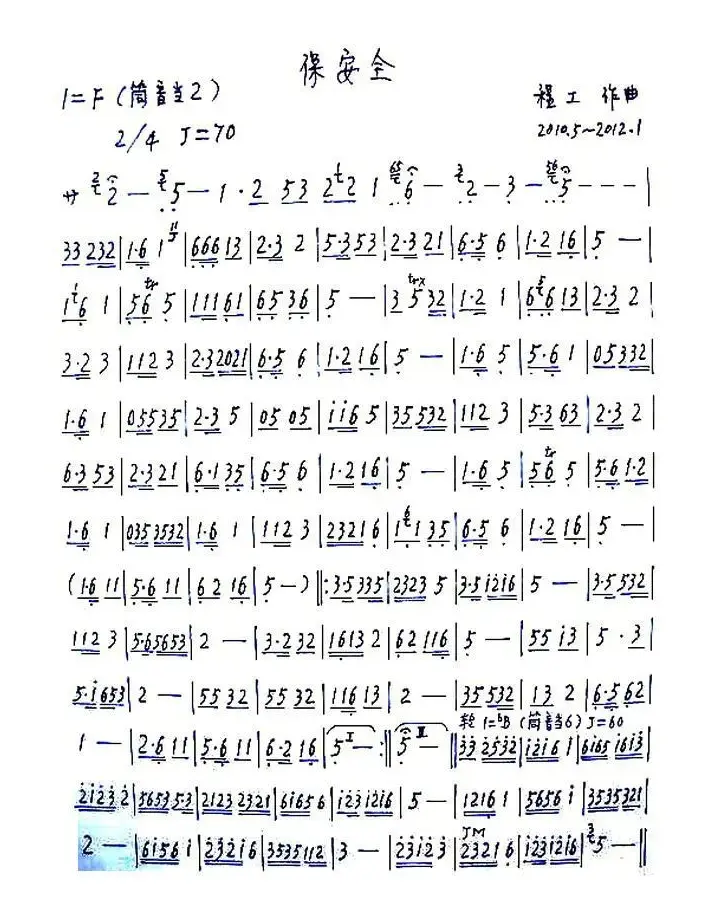 保安全
1=F（筒音当2）
程工 作曲
2/4 J=70
2010.5~2012.1
サ 2 2 — 5 5 — 1 · 2 53 2 1 2 1 65 6 — 3 2 — 3 — 56 5 — — — |
33 232 | 1·6 1 | 666 13 | 2·3 2 | 5·3 53 | 2·3 21 | 6·5 6 | 1·2 16 | 5 — |
1 1 6 1 | 56 tr 5 | 111 61 | 65 36 | 5 — | 3 5 32 | 1·2 1 | 6 5 6 13 | 2·3 2 |
3·2 3 | 112 3 | 2·3 2021 | 6·5 6 | 1·2 16 | 5 — | 1·6 5 | 5·6 1 | 05 3332 |
1·6 1 | 05535 | 2·3 5 | 05 05 | i i 6 5 | 35 532 | 112 3 | 5·3 63 | 2·3 2 |
6·3 53 | 2·3 21 | 6·1 35 | 6·5 6 | 1·2 16 | 5 — | 1·6 5 | 56 tr 5 | 5·6 1·2 |
1·6 1 | 035 3532 | 1·6 1 | 112 3 | 2321 6 | 1 6 1 35 | 6·5 6 | 1·2 16 | 5 — |
(1·6 11 | 5·6 11 | 62 16 | 5 —) ‖: 3·5 335 | 2323 5 | 3·5 i2i6 | 5 — | 3·5 532 |
112 3 | 5·65653 | 2 — | 3·2 32 | 1613 2 | 62 116 | 5 — | 55 i3 | 5 · 3 |
5·i 653 | 2 — | 55 32 | 55 32 | 116 13 | 2 — | 35 532 | 13 2 | 6·5 62 |
轮 1=bB（筒音当6）J=60
1 — | 2·6 11 | 5·6 11 | 6·2 16 | 5 I — :‖ 5 II — ‖ 33 2532 | i2i6 i | 6i65 i6i3 |
2i23 2 | 5653 5·3 | 2123 2321 | 6i65 6 | i23 i2i6 | 5 — | 1216 1 | 5656 i | 3535321 |
2 — | 6i56 i | 232i 6 | 3535 112 | 3 — | 23 i23 | JM 2321 6 | i23 i2i6 | 3 5 — ‖